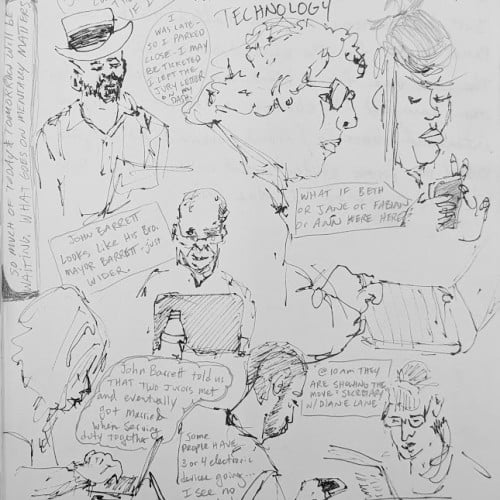 TECHNOLOGY
I
WAS LATE-
SO I PARKED
CLOSE - I MAY
BE TICKETED
I LEFT THE
JURY LETTER
ON MY
DASH
SO MUCH OF TODAY & TOMORROW WILL BE
WAITING, WHAT GOES ON MENTALLY MATTERS
WHAT IF BETH
OR JANE OR FABIAN
OR ANN WERE HERE?
JOHN BARRETT
LOOKS LIKE HIS BRO.
MAYOR BARRETT - JUST
WIDER.
John Barrett told us
THAT TWO JURORS MET
and eventually
got married
when serving
duty together
Some
PEOPLE HAVE
3 or 4 electronic
devices going...
I see no
@ 10 AM THEY
ARE SHOWING THE
MOVIE: SECRETARY
W/ DIANE LANE